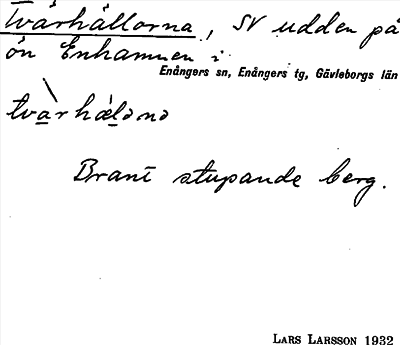 Tvärhällorna, SV udden på
ön Enhamnen i
Enångers sn, Enångers tg, Gävleborgs län
Brant stupande berg.
LARS LARSSON 1932